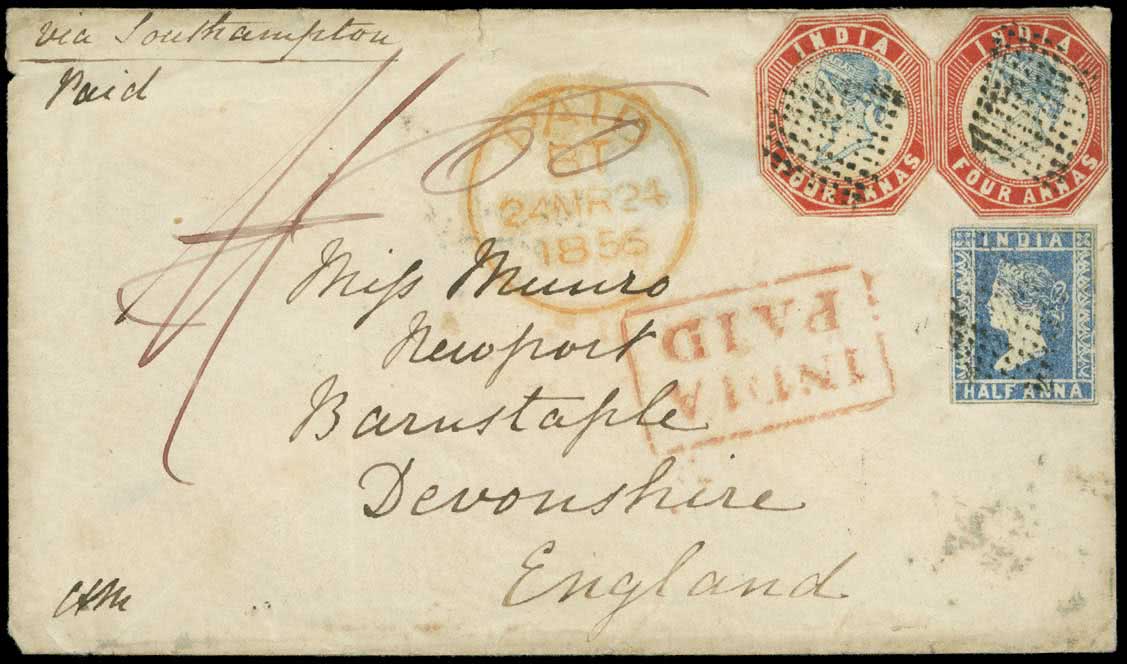 via Southampton
Paid
INDIA
FOUR ANNAS
INDIA
FOUR ANNAS
PAID
24 MR 24
INDIA
HALF ANNA
Miss Munro
Newport
Barnstaple
Devonshire
England
INDIA
PAID